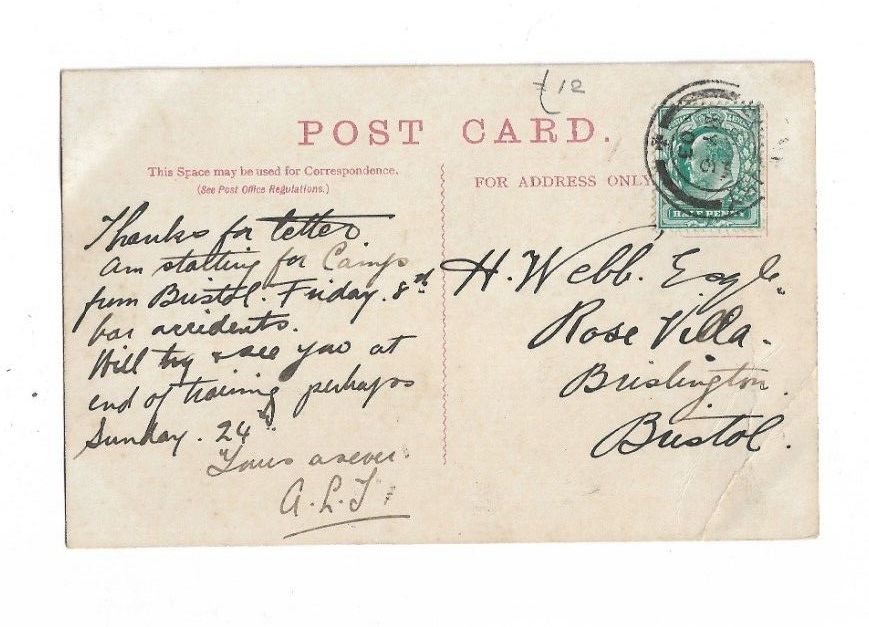 £12
POST CARD.
This Space may be used for Correspondence.
(See Post Office Regulations.)
FOR ADDRESS ONLY
HALF PENNY
Thanks for letter
am starting for Camp
from Bristol. Friday. 8th
bar accidents.
Will try & see you at
end of training perhaps
Sunday. 24th.
Yours as ever.
A.L.J.
H. Webb. Esqre.
Rose Villa.
Brislington.
Bristol.